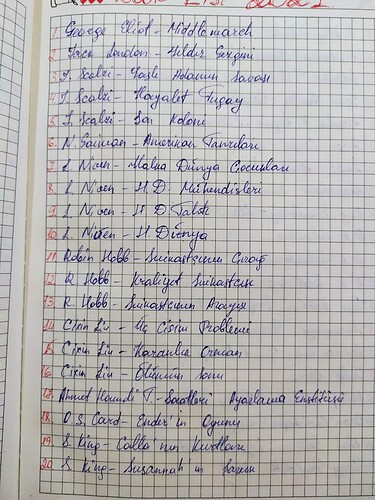 1 George Eliot - Middlemarch
2 Jack London - Yıldız Gezgini
3 J. Scalzi - Yaşlı Adamın Savaşı
4 J. Scalzi - Hayalet Tugay
5 J. Scalzi - Son Koloni
6. N. Gaiman - Amerikan Tanrıları
7 L. Niven - Halka Dünya Çocukları
8 L. Niven - H.D. Mühendisleri
9. L. Niven - H.D. Tahtı
10 L. Niven - H. Dünya
11 Robin Hobb - Suikastçının Çırağı
12 R. Hobb - Kraliyet Suikastçısı
13 R. Hobb - Suikastçının Arayışı
14 Cixin Liu - Üç Cisim Problemi
15 Cixin Liu - Karanlık Orman
16 Cixin Liu - Ölümün Sonu
17. Ahmet Hamdi T. - Saatleri Ayarlama Enstitüsü
18. O.S. Card - Ender'in Oyunu
19. S. King - Calla'nın Kurtları
20 S. King - Susannah'ın Şarkısı